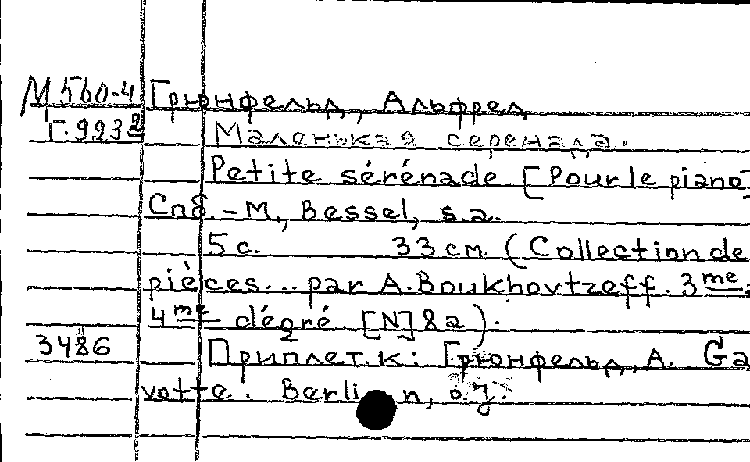 М 560-4 Грюнфельд, Альфред
Г. 9232 Маленькая серенада.
Petite sérénade. [Pour le piano]
Спб. - М., Bessel, s.a.
5 с. 33 см. (Collection de
pièces... par A. Boukhovtzeff. 3me,
4me dégré [N] 82).
3486 Приплет. к: Грюнфельд, А. Ga
votte. Berlin, o.J.